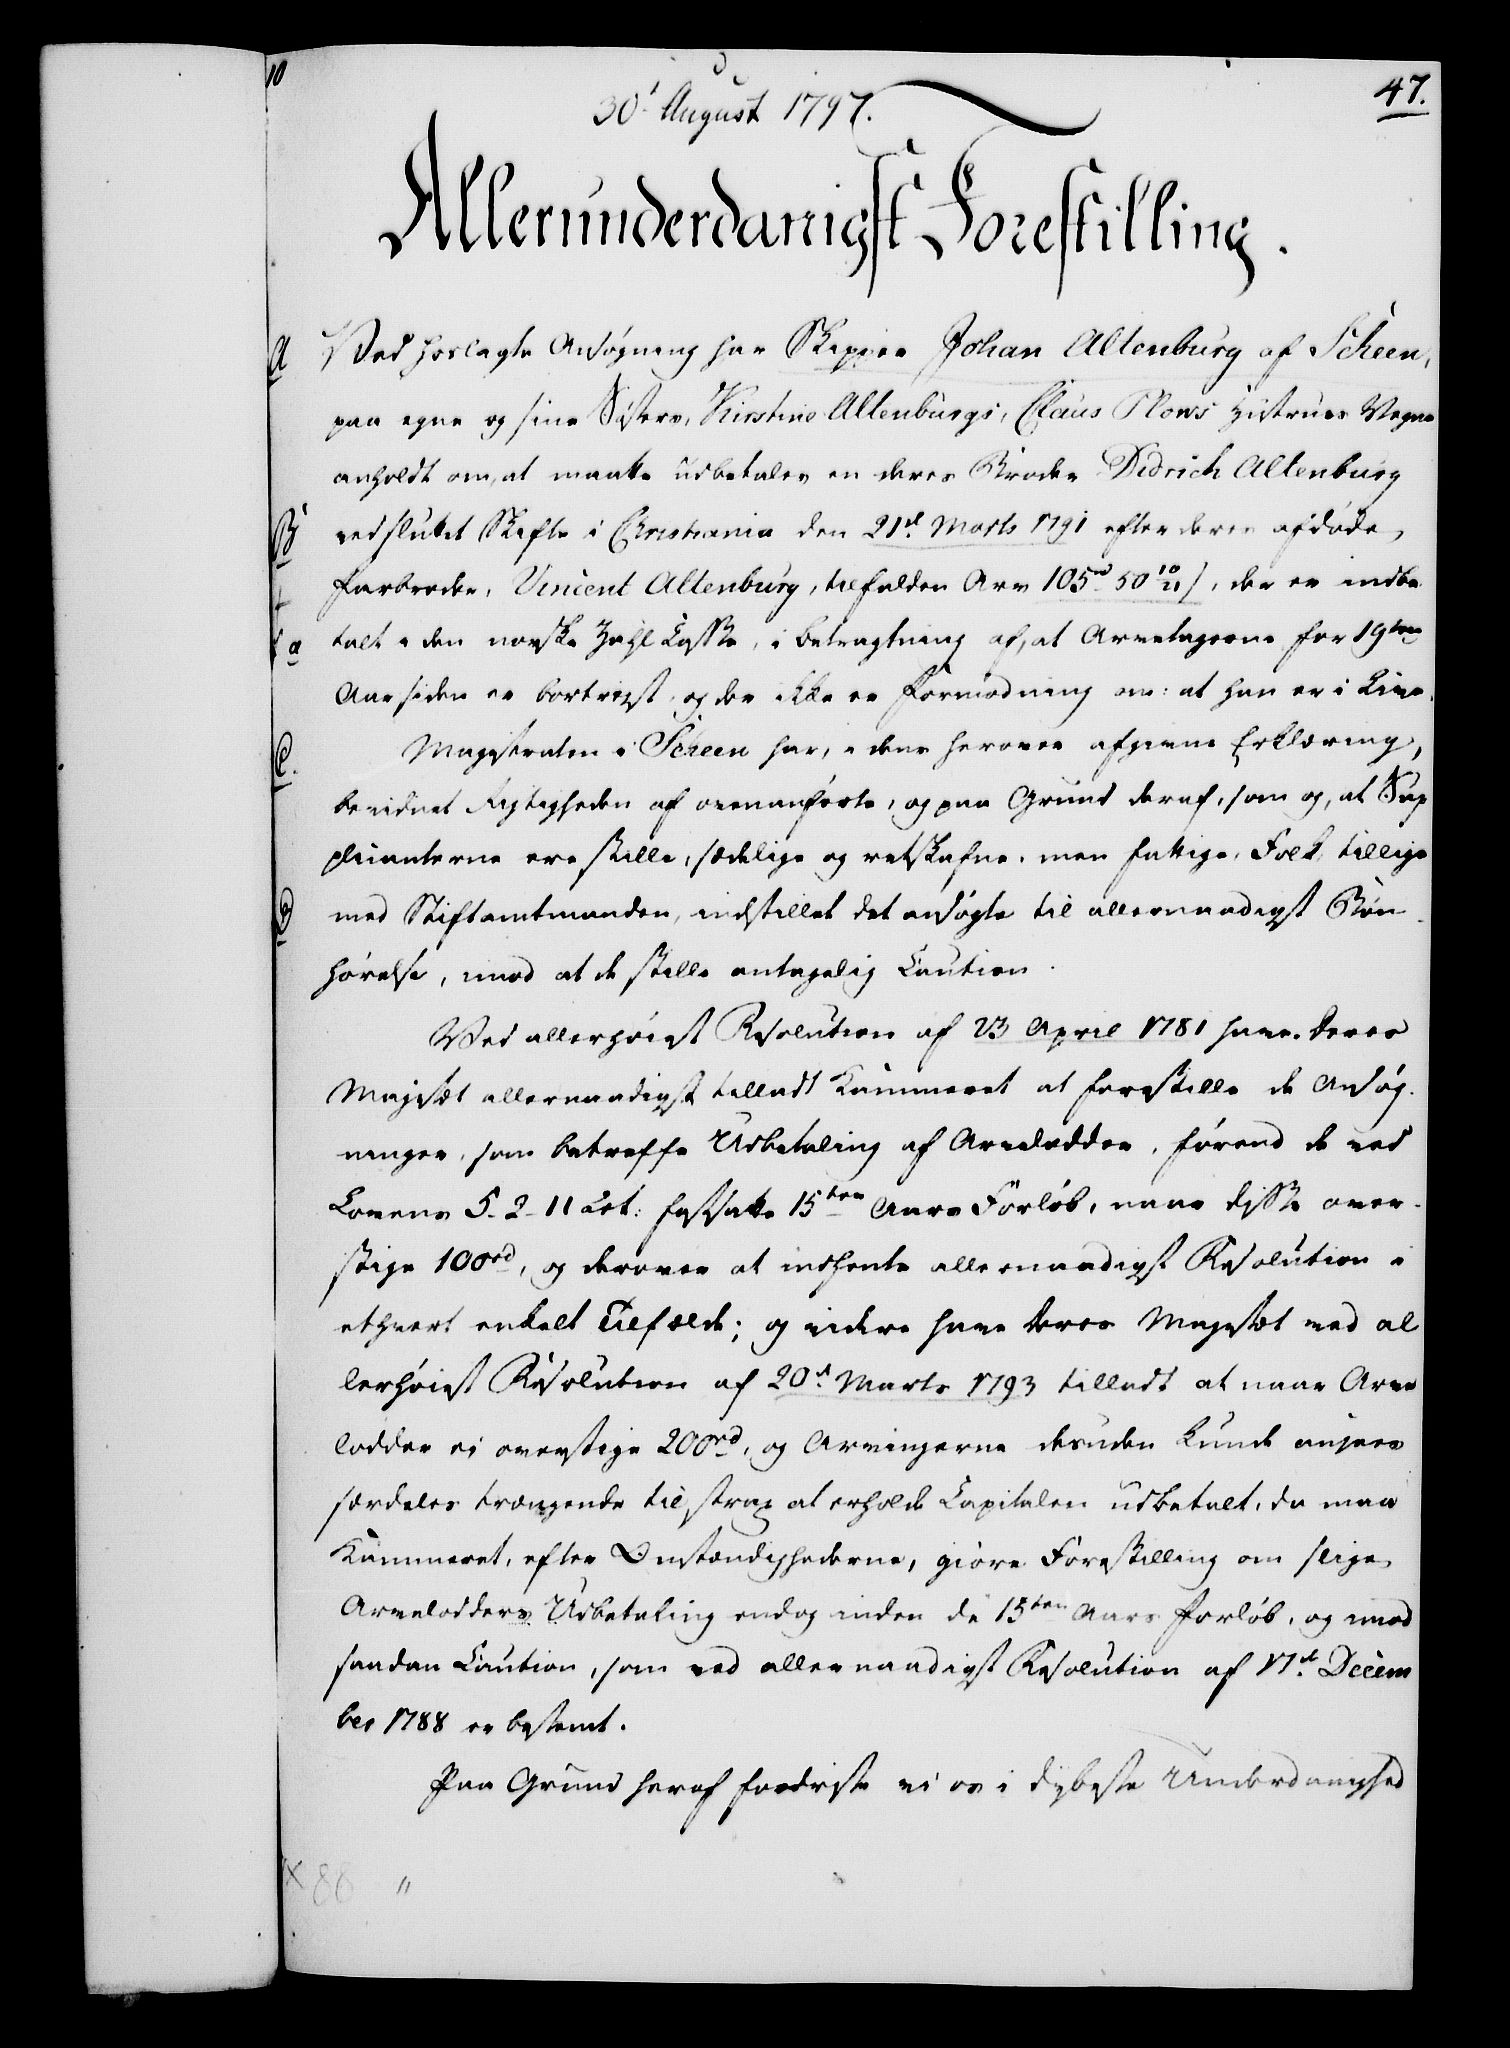 10
47.
30t August 1797.
Allerunderdanigst Forestilling.
A Ved hoslagte Ansøgning har Skipper Johan Altenburg af Scheen,
paa egne og sine Søsters, Kirstine Altenburgs, Claus Plows Hustrues Vegne
anholdt om, at maatte udbetales en deres Broder Didrich Altenburg
B ved sluttet Skifte i Christiania den 21d Marts 1791 efter deres afdøde
Farbroder, Vincent Altenburg, tilfalden Arv 105rd 50 10/11 s, der er indbe
a talt i den norske Zahl Casse, i betragtning af, at Arvetageren for 19ten
Aar siden er bortreyst, og der ikke er Formodning om: at han er i Live.
C. Magistraten i Scheen har, i dens herover afgivne Erklæring,
bevidnet Rigtigheden af ovenanførte, og paa Grund deraf, som og, at Sup
plicanterne ere stille, sædelige og retskafne, men fattige, Folk, tillige
D med Stiftamtmanden, indstillet det ansøgte til allernaadigst Bøn
hørelse, imod at de stille antagelig Caution.
Ved allerhøiest Resolution af 23 April 1781 have Deres
Majestæt allernaadigst tilladt Kammeret at forestille de Ansøg
ninger, som betreffe Udbetaling af Arvelodder, førend de ved
Lovens 5-2-11 Art: fastsatte 15ten Aars Forløb, naar disse over-
stige 100rd, og derover at indhente allernaadigst Resolution i
ethvert enkelt Tilfælde; og videre have Deres Majestæt ved al
lerhøiest Resolution af 20d Marts 1793 tilladt at naar Arve
lodder ei overstige 200rd, og Arvingerne desuden kunde ansees
særdeles trængende til strax at erholde Capitalen udbetalt, da maa
Kammeret, efter Omstændighederne, giøre Forestilling om slige
Arvelodders Udbetaling endog inden de 15ten Aars Forløb, og imod
saadan Caution, som ved allernaadigst Resolution af 17d Decem
ber 1788 er bestemt.
Paa Grund heraf fordriste vi os i dybeste Underdanighed
x 88 "